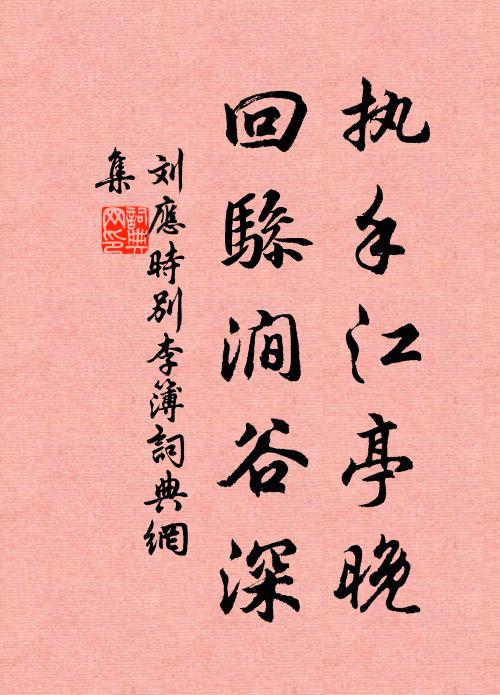 执手江亭晚
回驂澗谷深
刘應時别李簿詞典網
集
詞典
网印